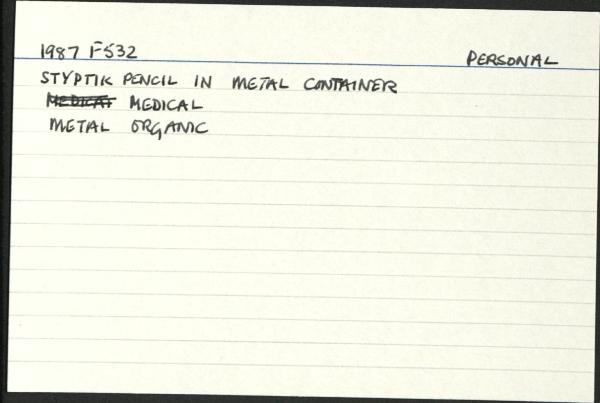 1987 F532 PERSONAL
STYPTIK PENCIL IN METAL CONTAINER
MEDICAL
METAL ORGANIC